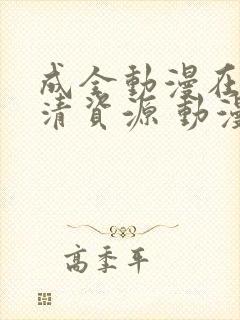 成全動漫在
清資源 動漫
高季平